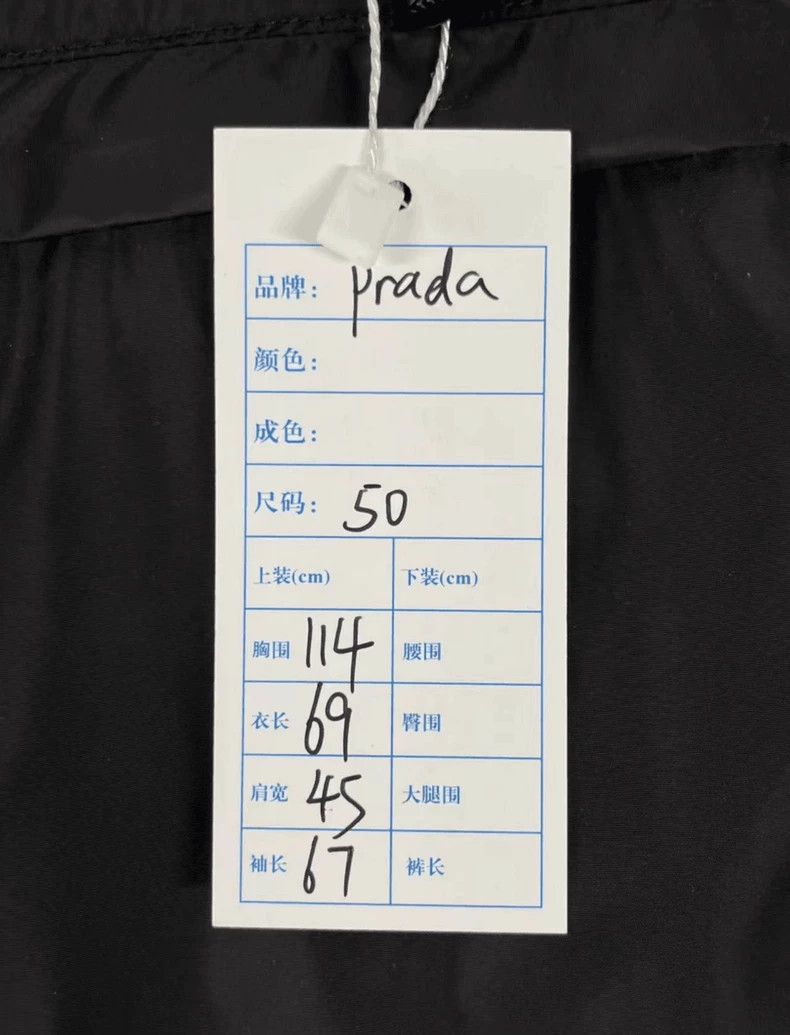 品牌: prada
颜色:
成色:
尺码: 50
上装(cm) 下装(cm)
胸围 114 腰围
衣长 69 臀围
肩宽 45 大腿围
袖长 67 裤长